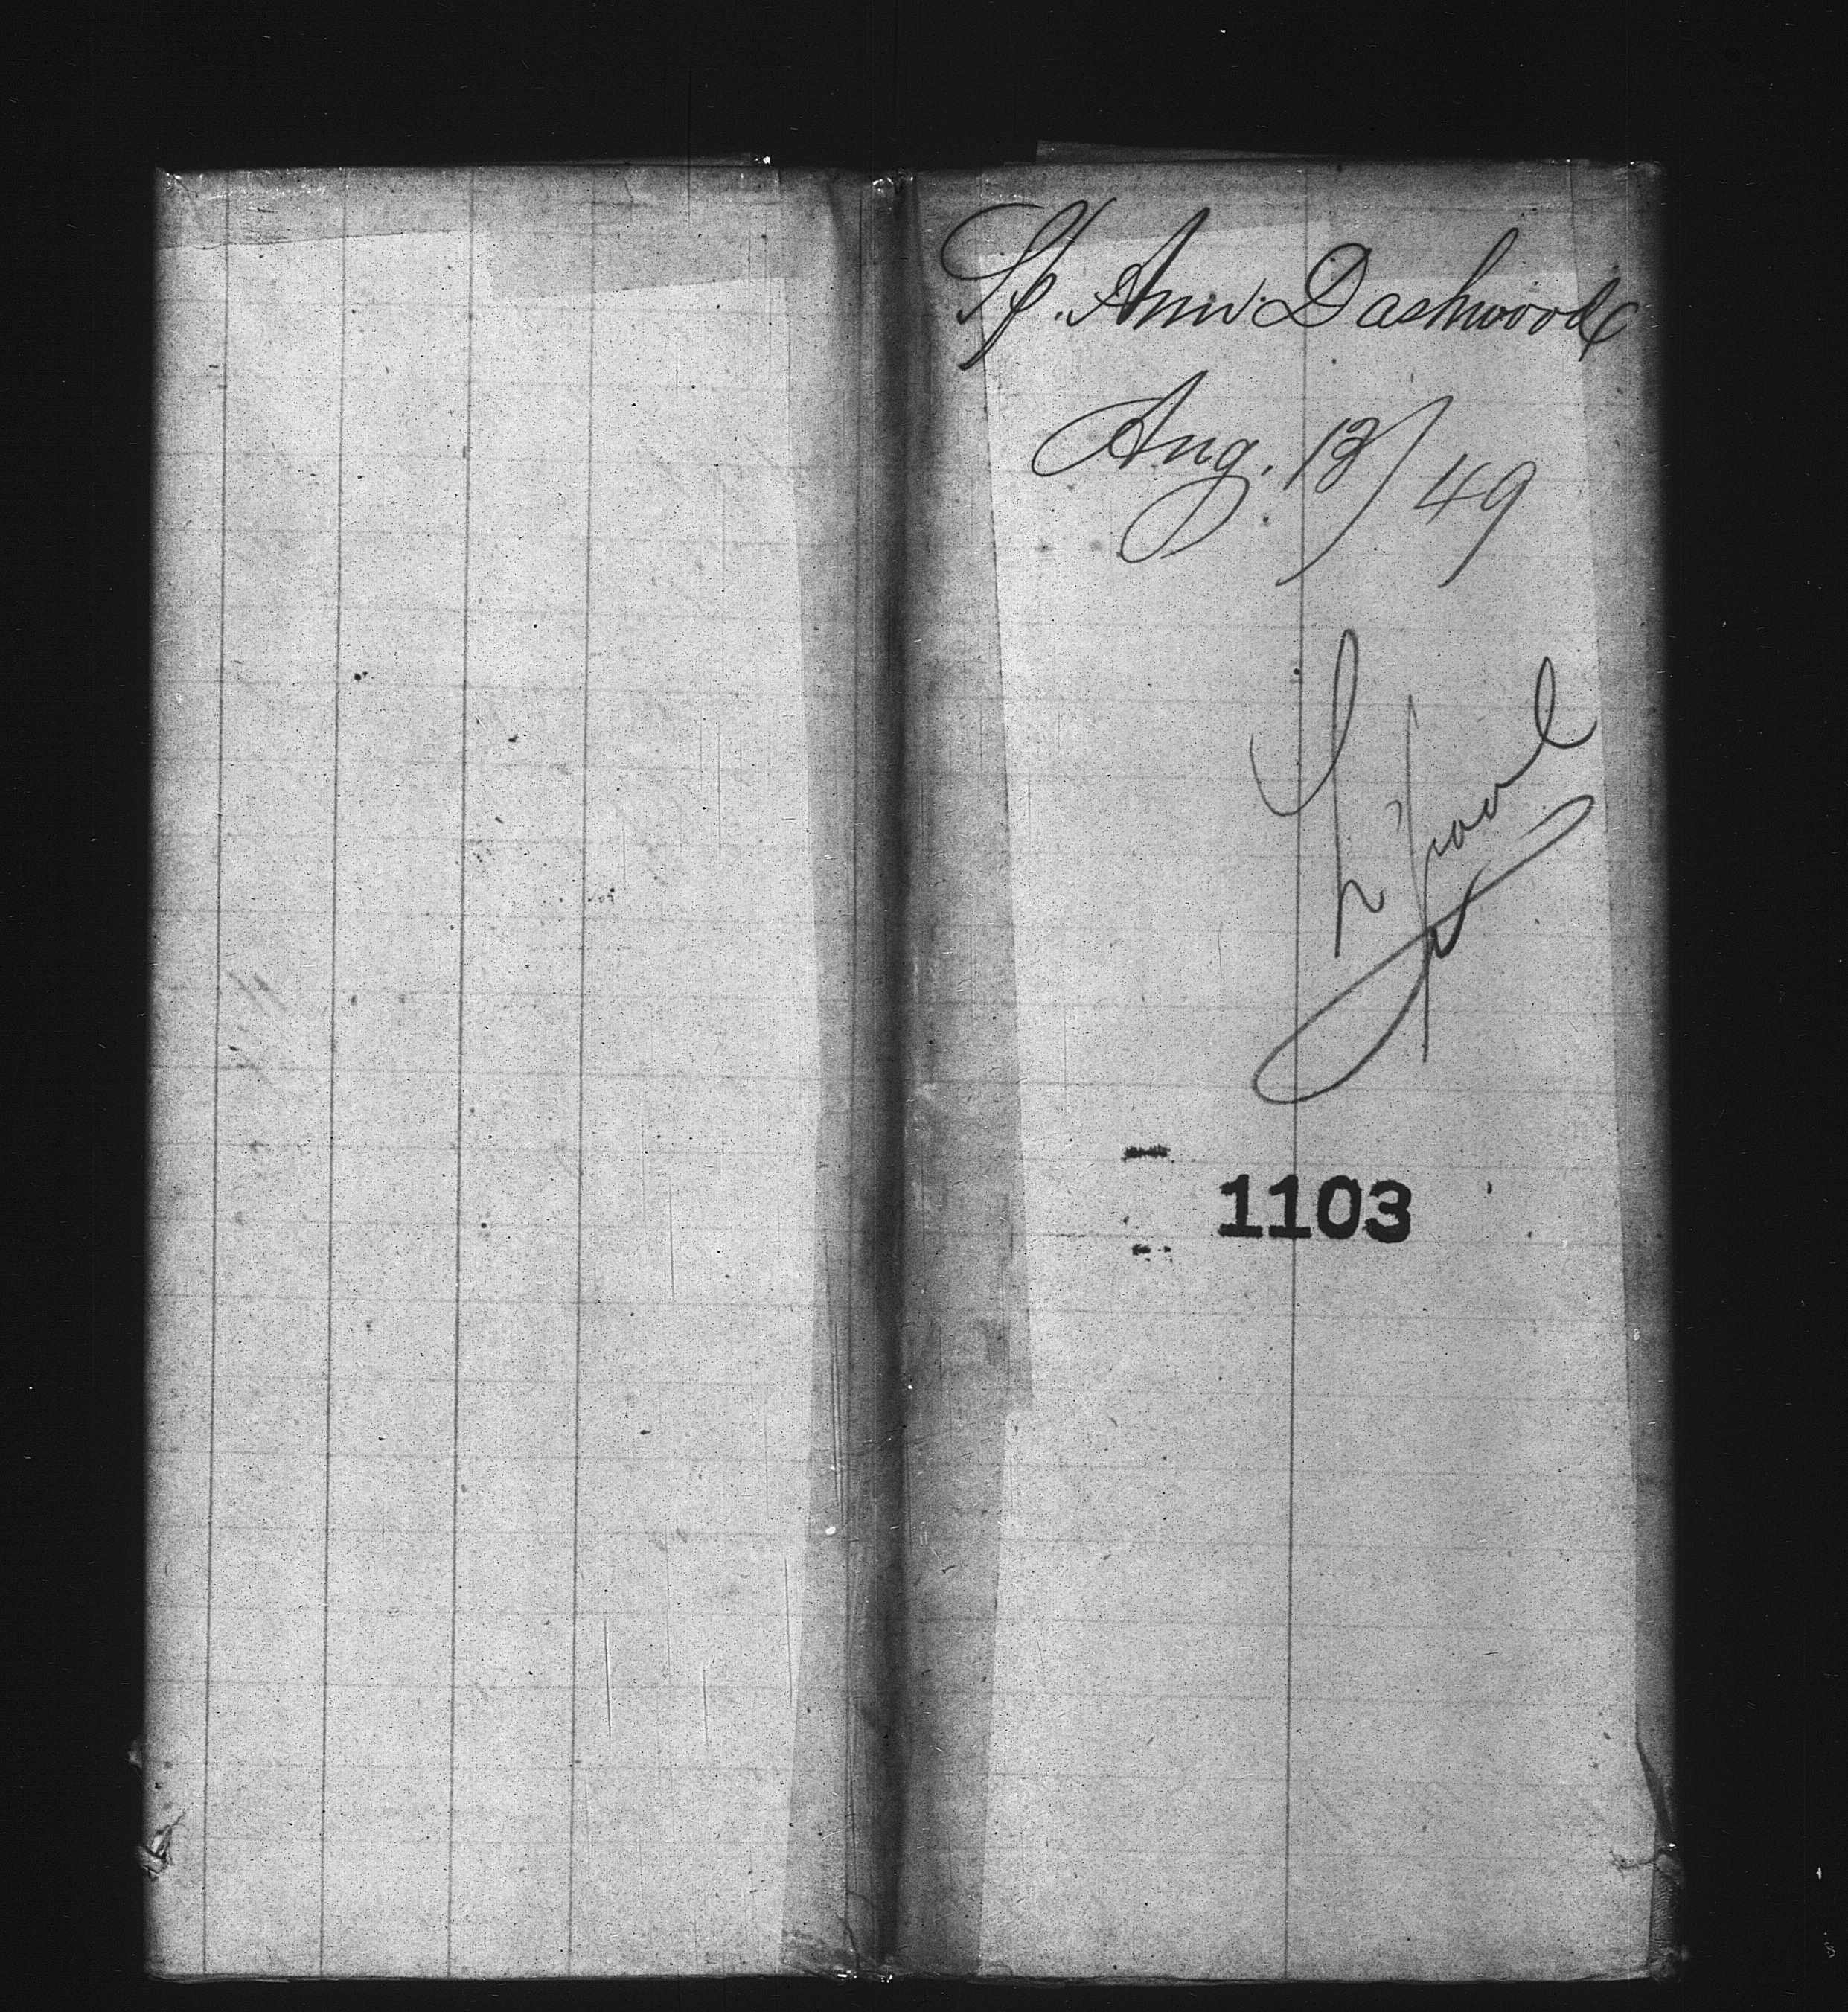 Sp. Ann Dashwood
Aug. 13/49
L'pool
1103